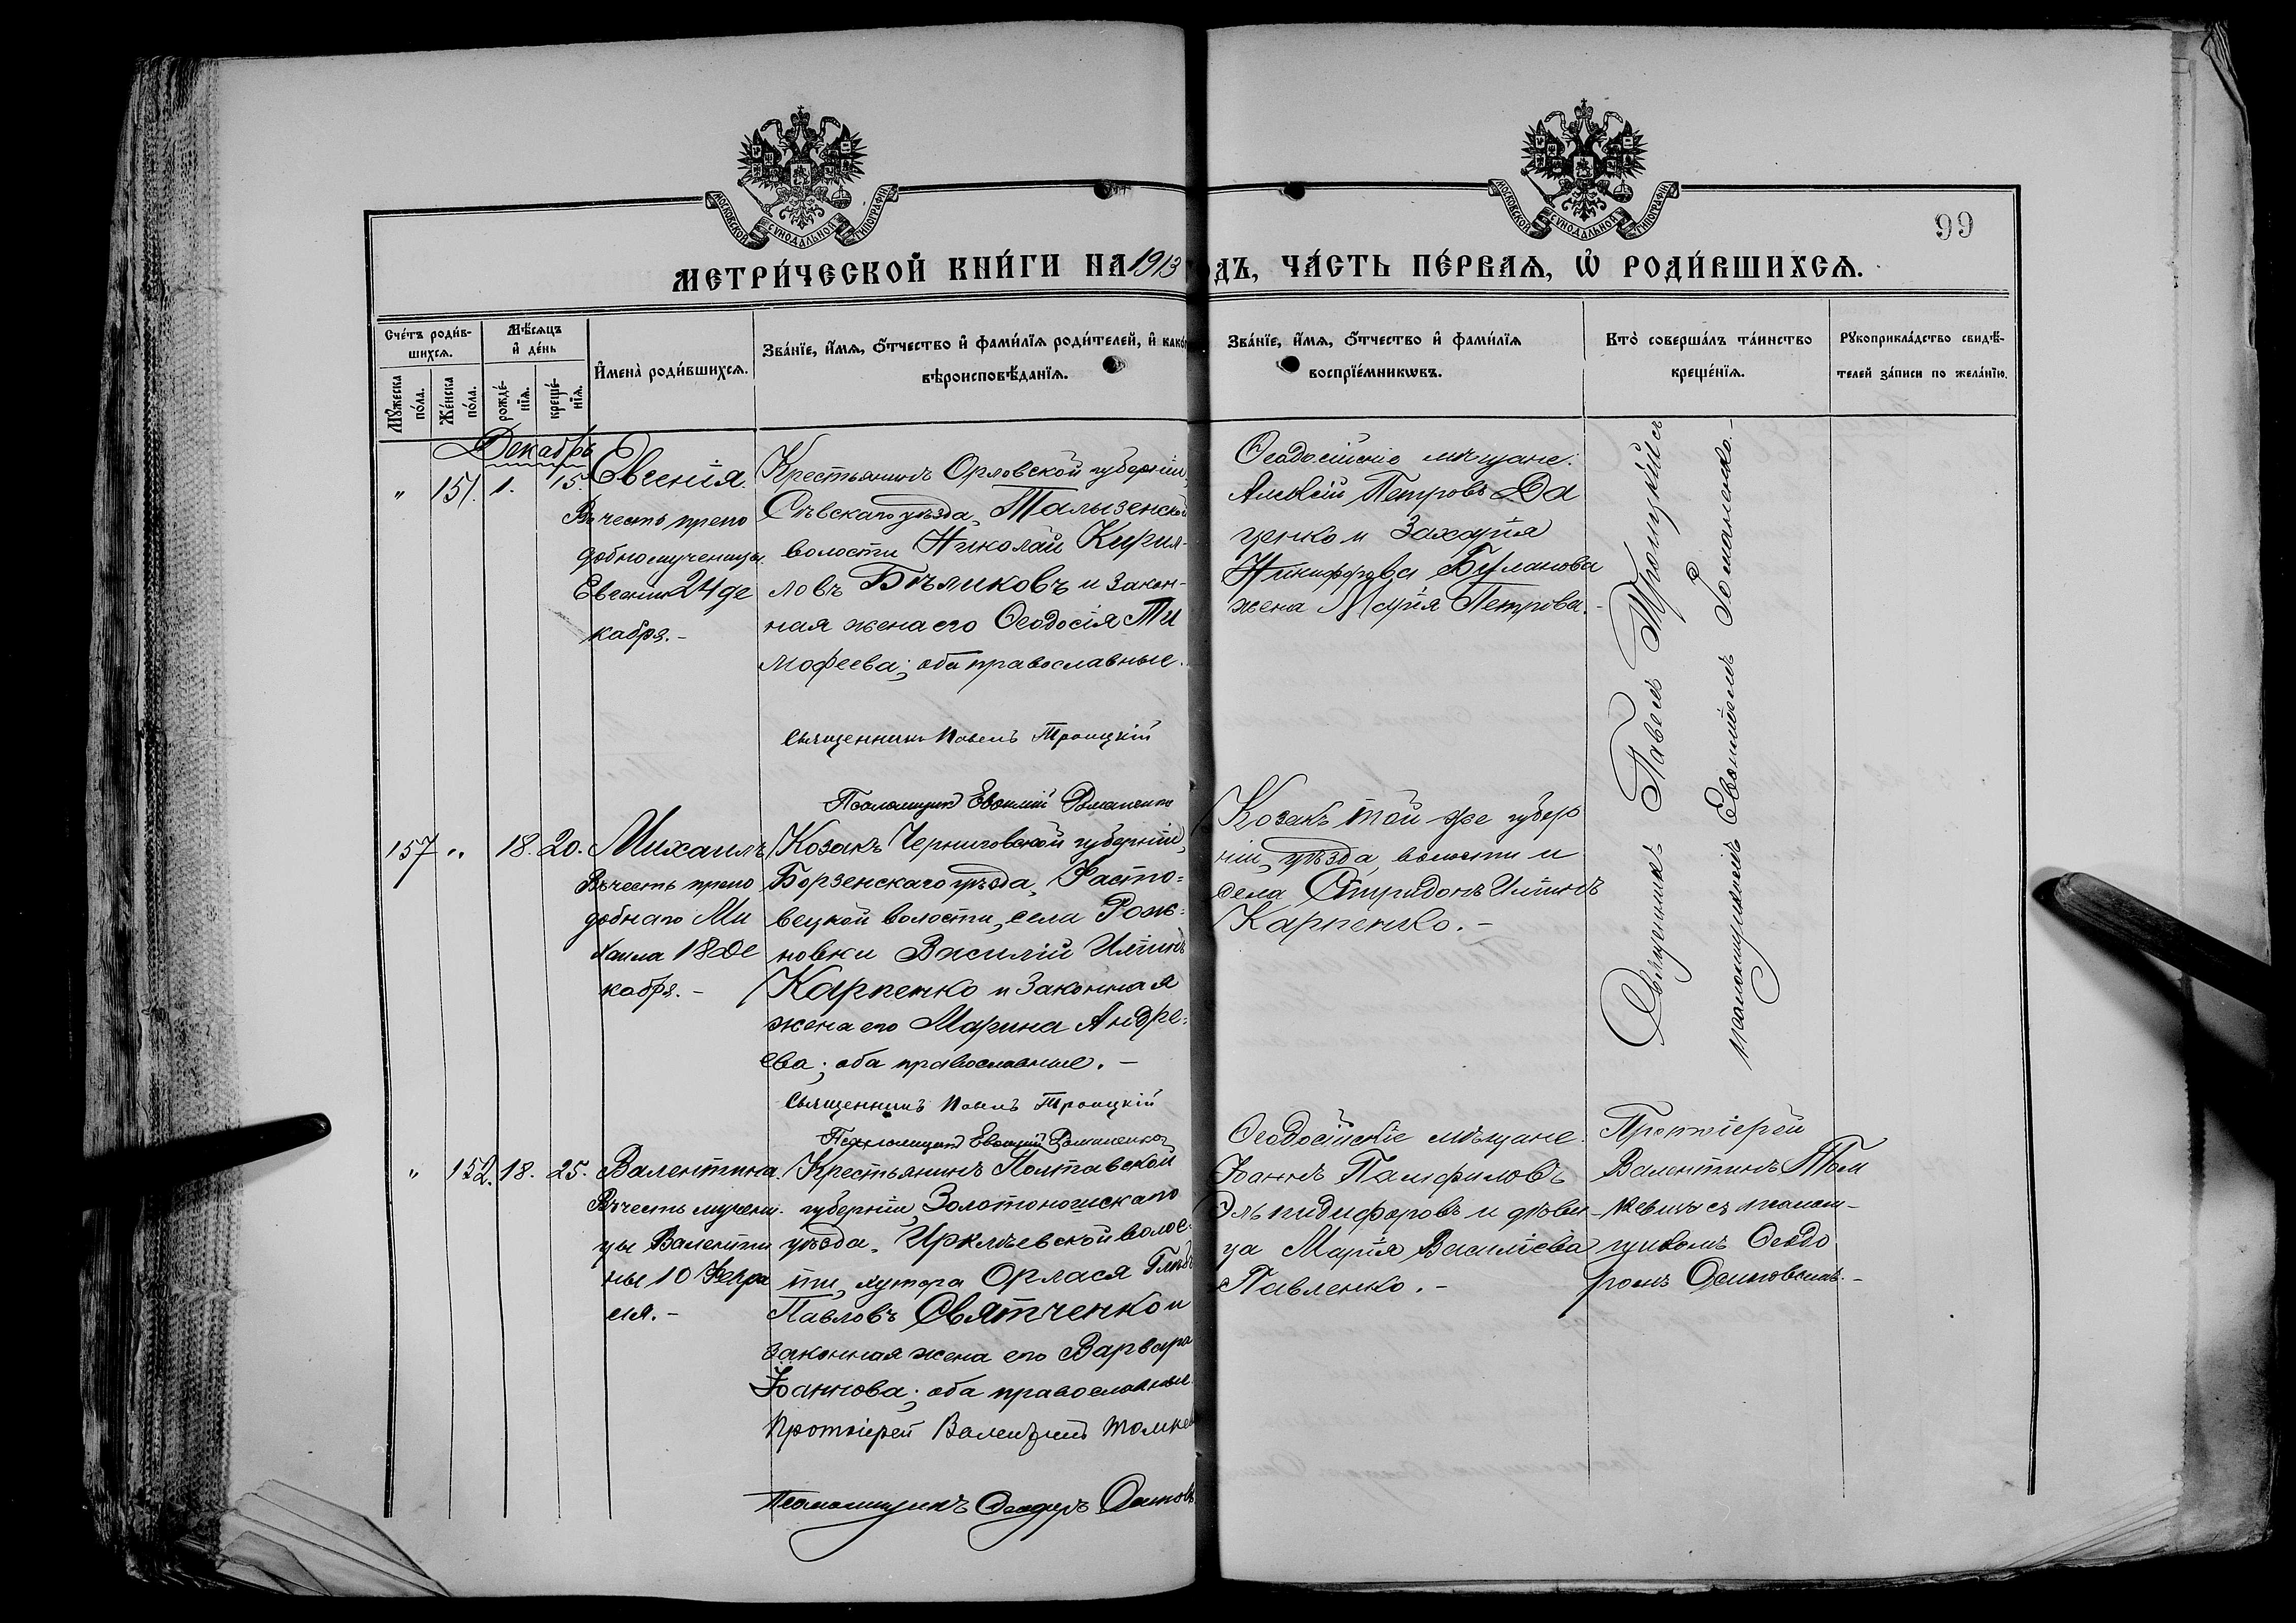 МОСКОВСКОЙ СУНОДАЛЬНОЙ ТИПОГРАФІИ
МОСКОВСКОЙ СУНОДАЛЬНОЙ ТИПОГРАФІИ
99
МЕТРИ́ЧЕСКОЙ КНИ́ГИ НА 1913
ДЪ, ЧА́СТЬ ПЕ́РВАЯ, Ѡ РОДИ́ВШИХСЯ.
Сче́тъ роди́в-
шихся.
Мꙋ́жеска
по́ла.
Же́нска
по́ла.
Мѣ́сяцъ
и҆ де́нь
рожде́-
нїя.
креще́-
нїя.
И҆мена̀ роди́вшихся.
Зва́нїе, и҆́мя, ѻ҆́тчество и҆ фами́лїя роди́телей, и҆ како́
вѣроисповѣ́данїя.
Зва́нїе, и҆́мя, ѻ҆́тчество и҆ фами́лїя
воспрїе́мникѡвъ.
Кто̀ соверша́лъ та́инство
креще́нїя.
Рꙋкоприкла́дство свидѣ́-
телей за́писи по жела́нїю.
Декабрь
" 151. 1. 15. Евгенія.
Въ честь препо
добномученицы
Евгеніи 24 де
кабря.-
Крестьянинъ Орловской губерніи,
Сѣвскаго уѣзда,
волости Николай Кирил-
ловъ Бѣликовъ и закон-
ная жена его Ѳеодосія Ти
мофеева; оба православные.
Священникъ Павелъ Троицкій
Псаломщикъ Евѳимій Романенко
Ѳеодосійскіе мѣщане:
Алексій Петровъ Да
ценко и Захарія
Никифорова Буланова
жена Марія Петрова.-
Священникъ Павелъ Троицкій съ
псаломщикомъ Евѳиміемъ Романенко.-
157 " 18. 20. Михаилъ
Въ честь препо
добнаго Ми
хаила 18 де
кабря.-
Козакъ Черниговской губерніи,
Борзенскаго уѣзда, Фасто-
вецкой волости, села Рож-
новки Василій Иліинъ
Карпенко и законная
жена его Марина Андре-
ева; оба православные.-
Священникъ Павелъ Троицкій
Псаломщикъ Евѳимій Романенко
Козакъ той же губер
ніи, уѣзда, волости и
села Спиридонъ Иліинъ
Карпенко.-
" 152. 18. 25. Валентина.
Въ честь мучени-
цы Валенти
ны 10 Февра
ля.-
Крестьянинъ Полтавской
губерніи, Золотоношскаго
уѣзда, Ирклѣевской волос-
ти, хутора Глѣбъ
Павловъ Святченко и
законная жена его Варвара
Іоаннова; оба православные.
Протоіерей Валентинъ Томке
Псаломщикъ Ѳеодоръ
Ѳеодосійскіе мѣщане:
Іоаннъ Памфиловъ
Эльпидифоровъ и дѣви-
ца Марія Василіева
Павленко.-
Протоіерей
Валентинъ Том
кевичъ съ псалом-
щикомъ Ѳеодо
ромъ